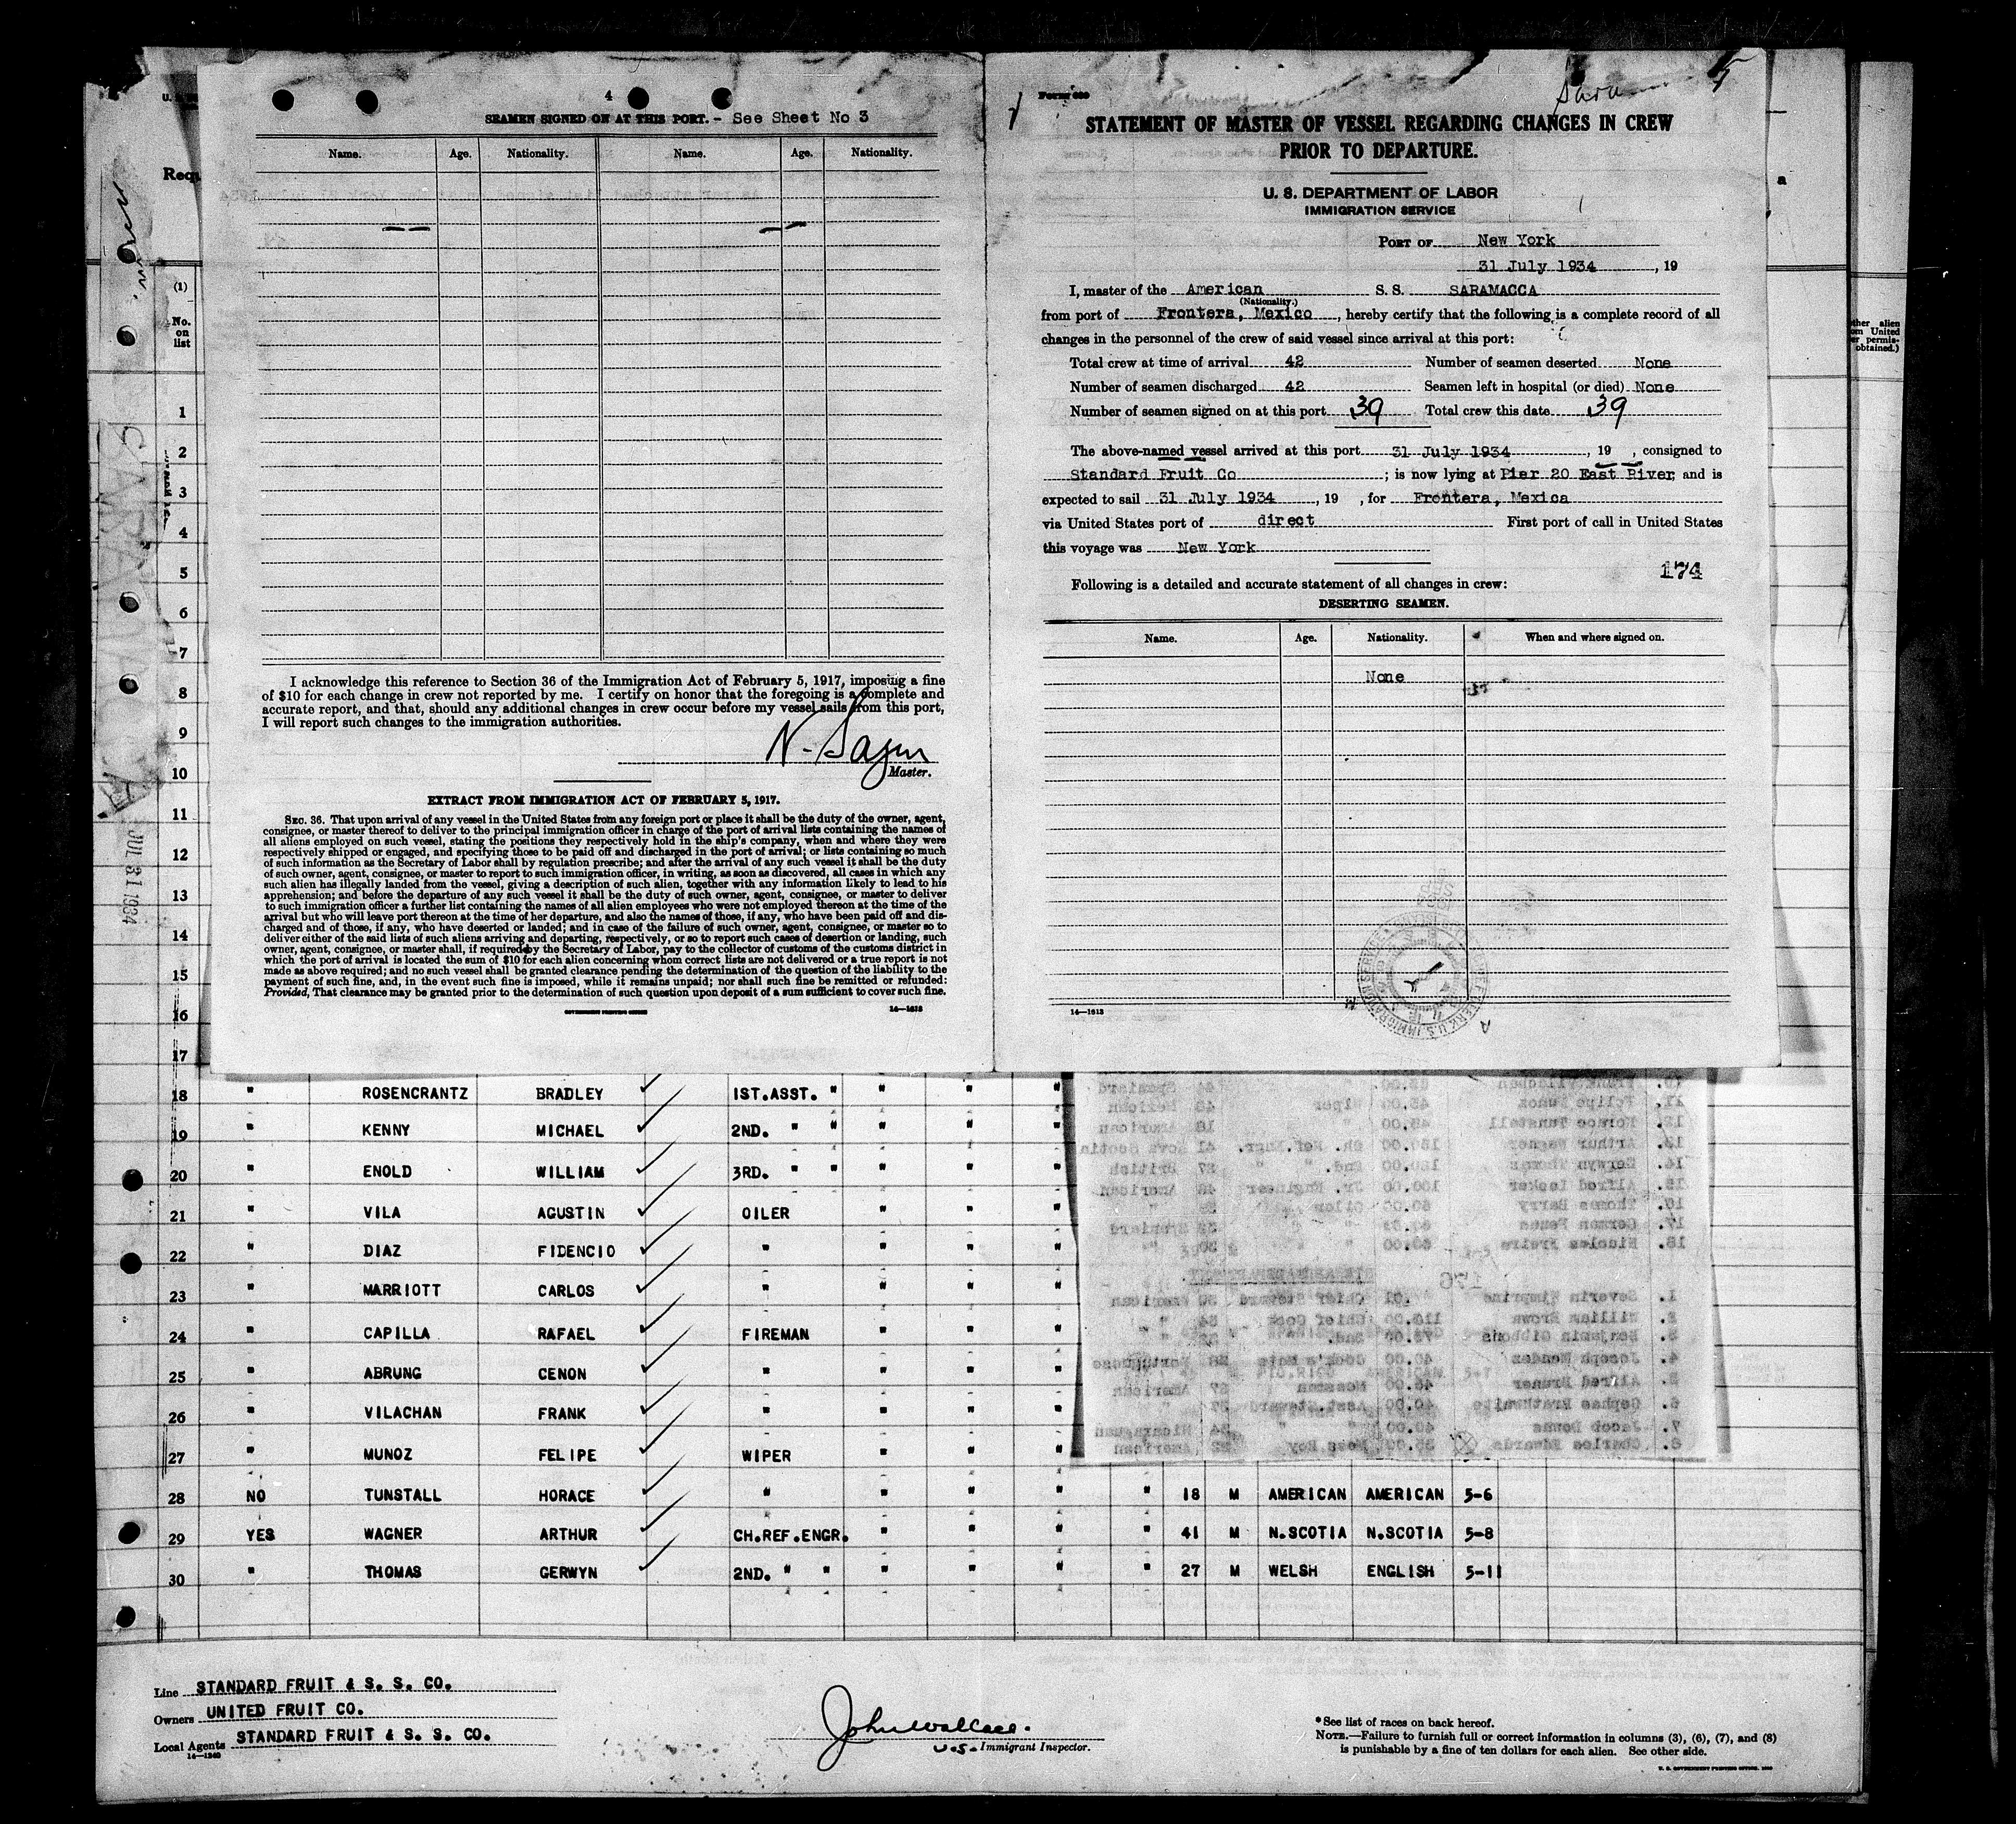 4
SEAMEN SIGNED ON AT THIS PORT. - See Sheet No 3
Name. Age. Nationality. Name. Age. Nationality.
I acknowledge this reference to Section 36 of the Immigration Act of February 5, 1917, imposing a fine
of $10 for each change in crew not reported by me. I certify on honor that the foregoing is a complete and
accurate report, and that, should any additional changes in crew occur before my vessel sails from this port,
I will report such changes to the immigration authorities.
Master.
EXTRACT FROM IMMIGRATION ACT OF FEBRUARY 5, 1917.
SEC. 36. That upon arrival of any vessel in the United States from any foreign port or place it shall be the duty of the owner, agent,
consignee, or master thereof to deliver to the principal immigration officer in charge of the port of arrival lists containing the names of
all aliens employed on such vessel, stating the positions they respectively hold in the ship's company, when and where they were
respectively shipped or engaged, and specifying those to be paid off and discharged in the port of arrival; or lists containing so much
of such information as the Secretary of Labor shall by regulation prescribe; and after the arrival of any such vessel it shall be the duty
of such owner, agent, consignee, or master to report to such immigration officer, in writing, as soon as discovered, all cases in which any
such alien has illegally landed from the vessel, giving a description of such alien, together with any information likely to lead to his
apprehension; and before the departure of any such vessel it shall be the duty of such owner, agent, consignee, or master to deliver
to such immigration officer a further list containing the names of all alien employees who were not employed thereon at the time of the
arrival but who will leave port thereon at the time of her departure, and also the names of those, if any, who have been paid off and dis-
charged and of those, if any, who have deserted or landed; and in case of the failure of such owner, agent, consignee, or master so to
deliver either of the said lists of such aliens arriving and departing, respectively, or so to report such cases of desertion or landing, such
owner, agent, consignee, or master shall, if required by the Secretary of Labor, pay to the collector of customs of the customs district in
which the port of arrival is located the sum of $10 for each alien concerning whom correct lists are not delivered or a true report is not
made as above required; and no such vessel shall be granted clearance pending the determination of the question of the liability to the
payment of such fine, and, in the event such fine is imposed, while it remains unpaid; nor shall such fine be remitted or refunded:
Provided, That clearance may be granted prior to the determination of such question upon deposit of a sum sufficient to cover such fine.
GOVERNMENT PRINTING OFFICE 14—1613
Sara
STATEMENT OF MASTER OF VESSEL REGARDING CHANGES IN CREW
PRIOR TO DEPARTURE.
U. S. DEPARTMENT OF LABOR
IMMIGRATION SERVICE
PORT OF New York
31 July 1934, 19
I, master of the American S. S. SARAMACCA
(Nationality.)
from port of Frontera, Mexico, hereby certify that the following is a complete record of all
changes in the personnel of the crew of said vessel since arrival at this port:
Total crew at time of arrival 42 Number of seamen deserted None
Number of seamen discharged 42 Seamen left in hospital (or died) None
Number of seamen signed on at this port 39 Total crew this date 39
The above-named vessel arrived at this port 31 July 1934, 19 , consigned to
Standard Fruit Co ; is now lying at Pier 20 East River, and is
expected to sail 31 July 1934, 19 , for Frontera, Mexica
via United States port of direct First port of call in United States
this voyage was New York
174
Following is a detailed and accurate statement of all changes in crew:
DESERTING SEAMEN.
Name. Age. Nationality. When and where signed on.
None
14—1613
Requ
(1)
No.
on
list
1
2
3
4
5
6
7
8
9
10
11
12
13
14
15
16
17
SARAMACCA
JUL 31 1934
ther alien
om United
er permis-
obtained.)
18 " ROSENCRANTZ BRADLEY 1ST.ASST. " " " "
19 " KENNY MICHAEL 2ND. " " " " "
20 " ENOLD WILLIAM 3RD. " " " " "
21 " VILA AGUSTIN OILER " " "
22 " DIAZ FIDENCIO " " " "
23 " MARRIOTT CARLOS " " " "
24 " CAPILLA RAFAEL FIREMAN " " "
25 " ABRUNG CENON " " " "
26 " VILACHAN FRANK " " " "
27 " MUNOZ FELIPE WIPER " " "
28 NO TUNSTALL HORACE " " " " " 18 M AMERICAN AMERICAN 5-6
29 YES WAGNER ARTHUR CH.REF.ENGR. " " " " 41 M N.SCOTIA N.SCOTIA 5-8
30 " THOMAS GERWYN 2ND. " " " " " " 27 M WELSH ENGLISH 5-11
Line STANDARD FRUIT & S. S. CO.
Owners UNITED FRUIT CO.
Local Agents STANDARD FRUIT & S. S. CO.
14—1240
John Wallace.
U.S. Immigrant Inspector.
*See list of races on back hereof.
NOTE.—Failure to furnish full or correct information in columns (3), (6), (7), and (8)
is punishable by a fine of ten dollars for each alien. See other side.